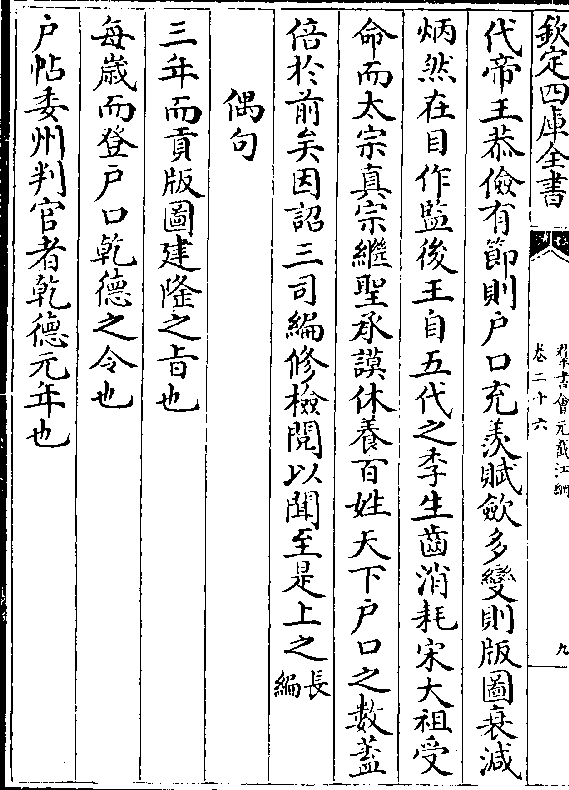 欽定四庫全書
羣書會元截江網
卷二十六
九
代帝王恭儉有節則户口充羨賦歛多變則版圖衰減
炳然在目作監後王自五代之季生齒消耗宋太祖受
命而太宗真宗繼聖承謨休養百姓天下户口之數葢
倍於前矣因詔三司編修檢閲以聞至是上之長編
偶句
三年而貢版圖建隆之㫖也
每歳而登户口乾德之令也
户帖委州判官者乾德元年也